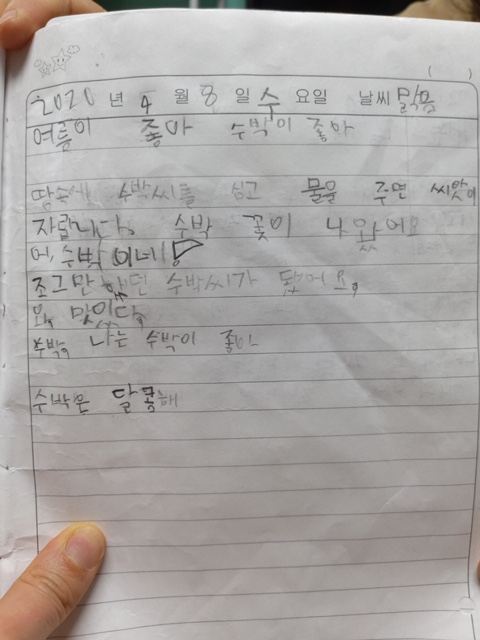 ( )
2020 년 4 월 8 일 수 요일 날씨 맑음
여름이 좋아 수박이 좋아
땅속에 수박씨를 심고 물을 주면 씨앗이
자랍니다. 수박 꽃이 나왔어요
어, 수박이네!
조그만 하던 수박씨가 됐어요.
와, 맛있다.
수박, 나는 수박이 좋아
수박은 달콤해